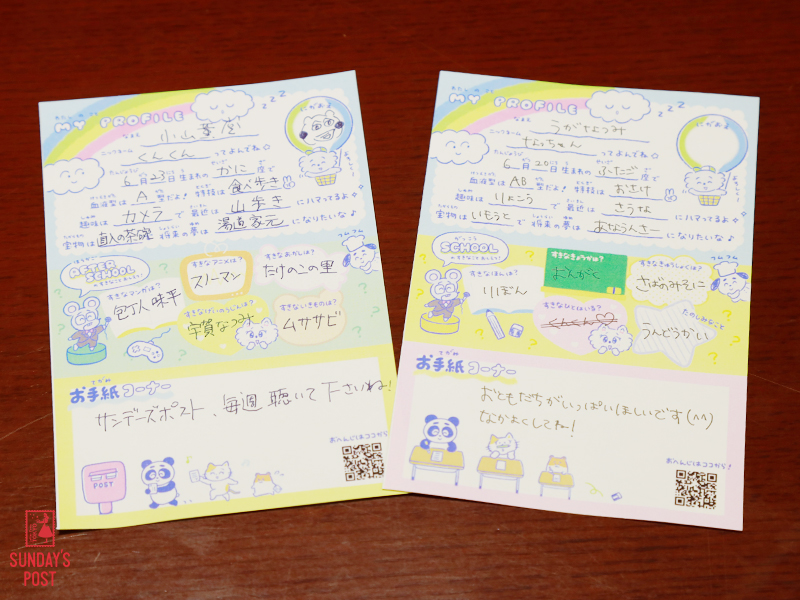 MY PROFILE
なまえ
小山薫堂
ニックネーム
くんくん ってよんでね☆
6月23日生まれの かに座で
血液型は A 型だよ! 特技は 食べ歩き
趣味は カメラ で 最近は 山歩き にハマってるよ
宝物は 直入の茶碗 で 将来の夢は 湯道家元 になりたいな♪
にがおえ
AFTER SCHOOL
すきなアニメは?
スリーマン
すきなおかしは?
たけのこの里
すきなマンガは?
包丁人味平
宇賀なつみ
すきないきものは?
ムササビ
てがみ
お手紙コーナー
サンデーズポスト、毎週聴いて下さいね!
おへんじはココから!
POST
MY PROFILE
なまえ
うがなつみ
ニックネーム
なっちゃん ってよんでね☆
6月20日生まれの ふたご座で
血液型は AB 型だよ! 特技は おさけ
趣味は りょこう で 最近は さうな にハマってるよ
宝物は いもうと で 将来の夢は あなうんさー になりたいな♪
にがおえ
がっこう
SCHOOL
すきなきょうかは?
おんがく
すきなきゅうしょくは?
さばのみそに
すきなほんは?
りぼん
すきなひとはいる?
くんくん♡
たのしみなこと
うんどうかい
てがみ
お手紙コーナー
おともだちがいっぱいほしいです(^^)
なかよくしてね!
おへんじはココから!
SUNDAY'S
POST